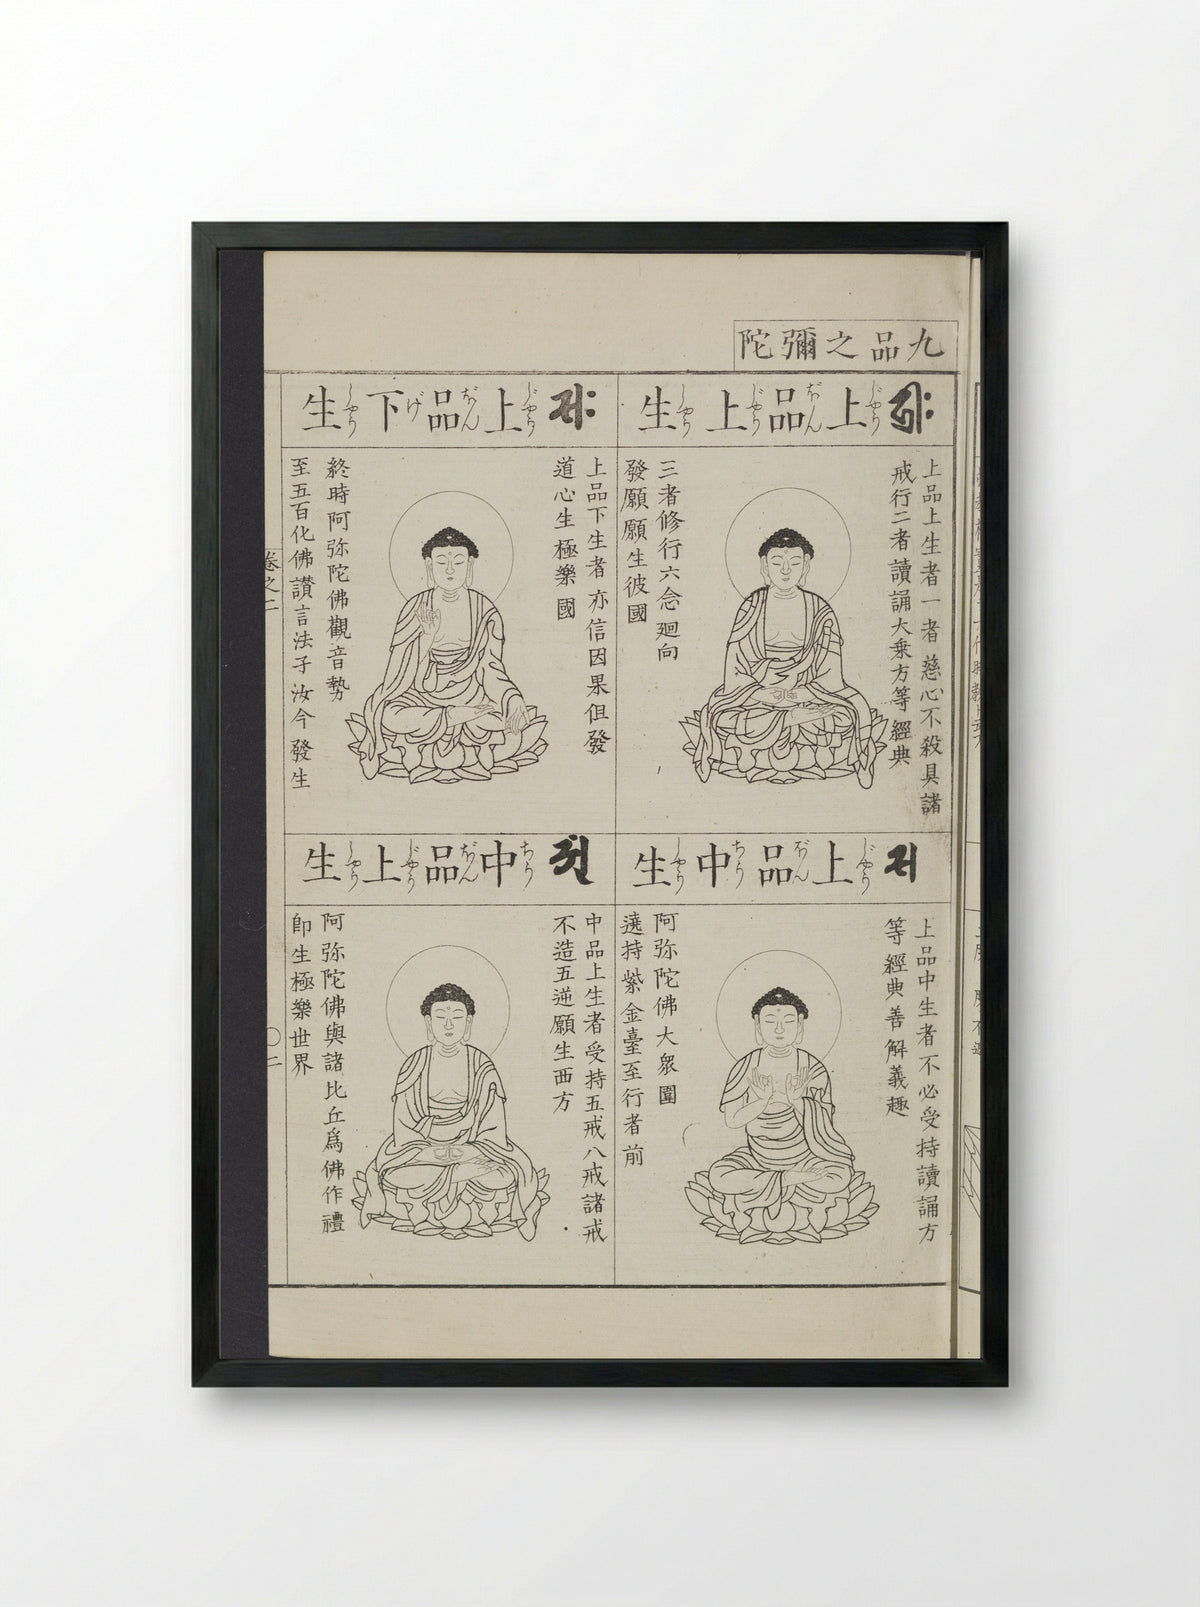 九品之彌陀
上品上生
じやうぼんじやうしやう
上品上生者一者慈心不殺具諸
戒行二者讀誦大乗方等經典
三者修行六念廻向
發願願生彼國
上品下生
じやうぼんげしやう
上品下生者亦信因果但發
道心生極樂國
終時阿弥陀佛觀音勢
至五百化佛讃言法子汝今發生
上品中生
じやうぼんちうしやう
上品中生者不必受持讀誦方
等經典善解義趣
阿弥陀佛大衆圍
遶持紫金臺至行者前
中品上生
ちうぼんじやうしやう
中品上生者受持五戒八戒諸戒
不造五逆願生西方
阿弥陀佛與諸比丘爲佛作禮
即生極樂世界
卷之二
〇二